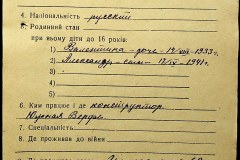 4. Національність русский
5. Родинний стан
при ньому діти до 16 років:
1) Валентина – дочь – 19/VIII – 1933 г.
2) Александр – сын – 17/IV – 1941 г.
3)
6. Ким працює і де конструктор
Южная Верфь
7. Спеціальність
8. Де проживав до війни